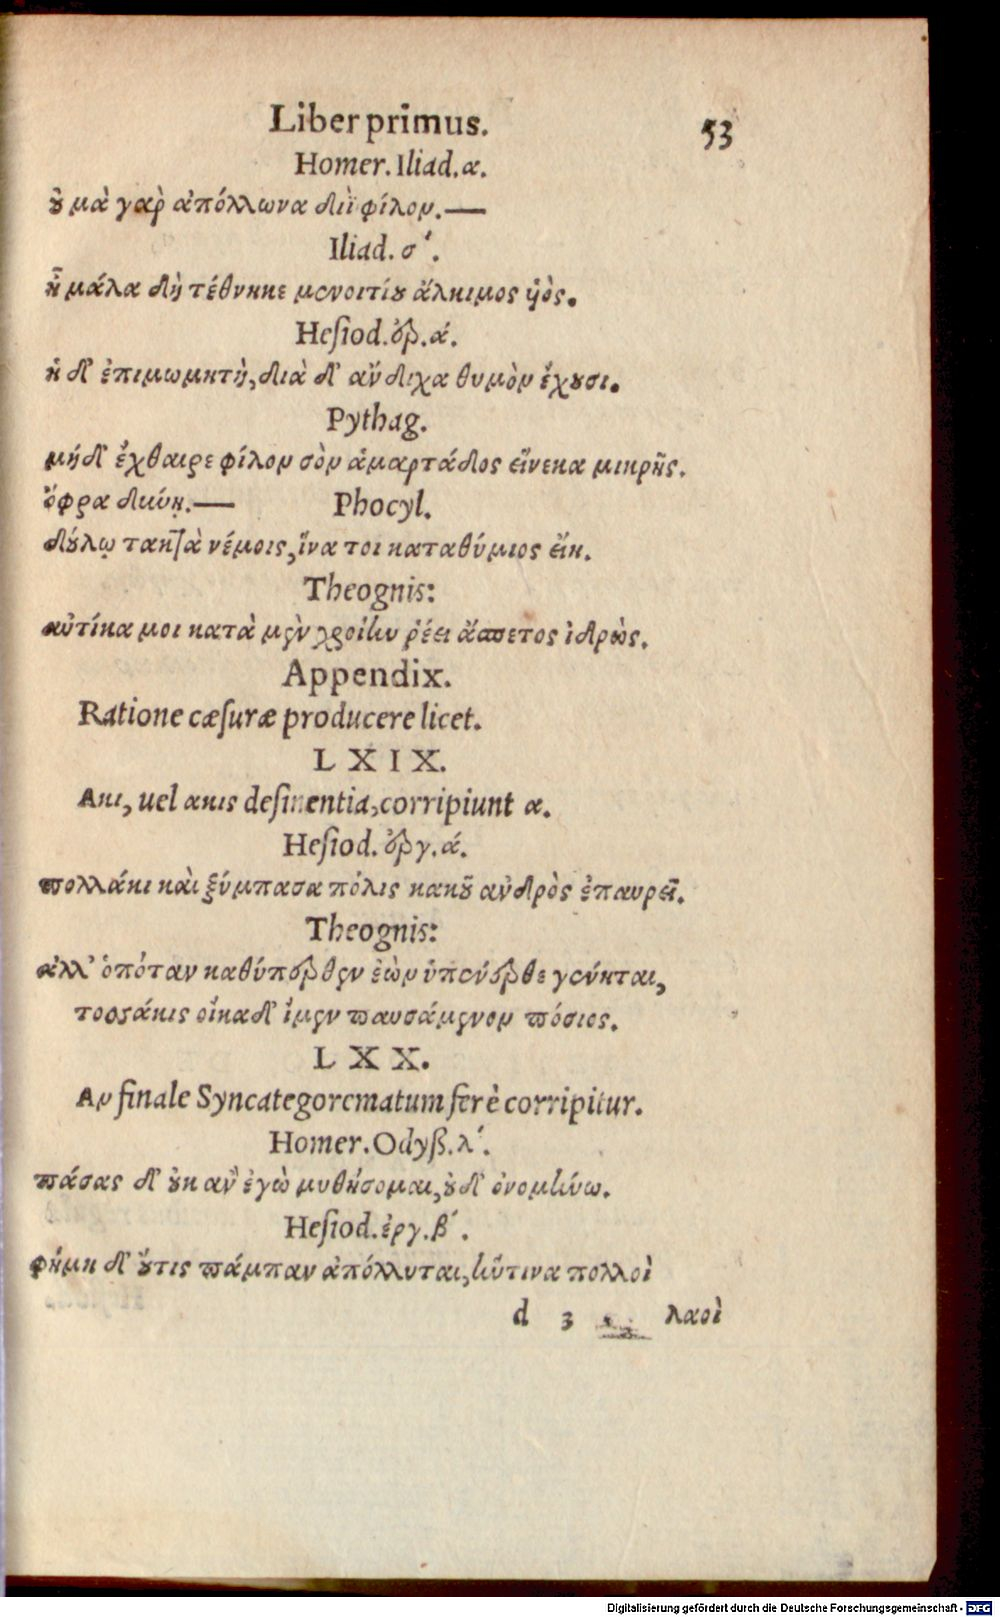 Liber primus. 53
Homer. Iliad. α.
ȣ̓ μὰ γαρ̀ ἀπόλλωνα διῒ φίλον.—
Iliad. σʹ.
ἦ μάλα δὴ τέθνηκε μενοιτίȣ ἄλκιμος ὑὸς.
Hesiod. ἐρ. ά.
ἡ δ' ἐπιμωμητὴ, διὰ δ' ἄνδιχα θυμὸν ἔχȣσι.
Pythag.
μήδ' ἔχθαιρε φίλον σὸν ἁμαρτάδος εἵνεκα μικρῆς.
ὄφρα δύνῃ.— Phocyl.
δȣ́λῳ τακτὰ νέμοις, ἵνα τοι καταθύμιος εἴη.
Theognis:
αὐτίκα μοι κατὰ μὲν χροίην ῥέει ἄσπετος ἱδρὼς.
Appendix.
Ratione cæsuræ producere licet.
LXIX.
Ακι, uel ακις desinentia, corripiunt α.
Hesiod. ἐργ. ά.
πολλάκι καὶ ξύμπασα πόλις κακȣ͂ ἀνδρὸς ἐπαυρεῖ.
Theognis:
ἀλλ' ὁπόταν καθύπερθεν ἐὼν ὑπένερθε γένηται,
τοσσάκις οἴκαδ' ἴμεν παυσάμενον πόσιος.
LXX.
Αν finale Syncategorematum ferè corripitur.
Homer. Odyss. λʹ.
πάσας δ' ȣ̓κ ἂν ἐγὼ μυθήσομαι, ȣ̓δ' ὀνομήνω.
Hesiod. ἐργ. βʹ.
φήμη δ' ȣ̓́τις πάμπαν ἀπόλλυται, ἥντινα πολλοὶ
d 3 λαοὶ
Digitalisierung gefördert durch die Deutsche Forschungsgemeinschaft - DFG